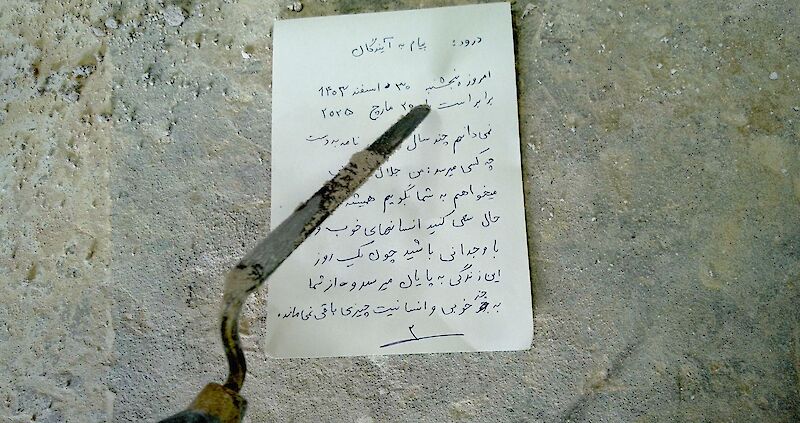 درود: پیام به آیندگان
امروز پنجشنبه ۳۰ اسفند ۱۴۰۳
برابر است با ۲۰ مارچ ۲۰۲۵
نمیدانم چند سال نامه به دست
چه کسی میرسد: من جلال
میخواهم به شما بگویم همیشه
حال سعی کنید انسانهای خوب و
با وجدانی باشید چون یک روز
این زندگی به پایان میرسد و از شما
به جز خوبی و انسانیت چیزی باقی نمی‌ماند.